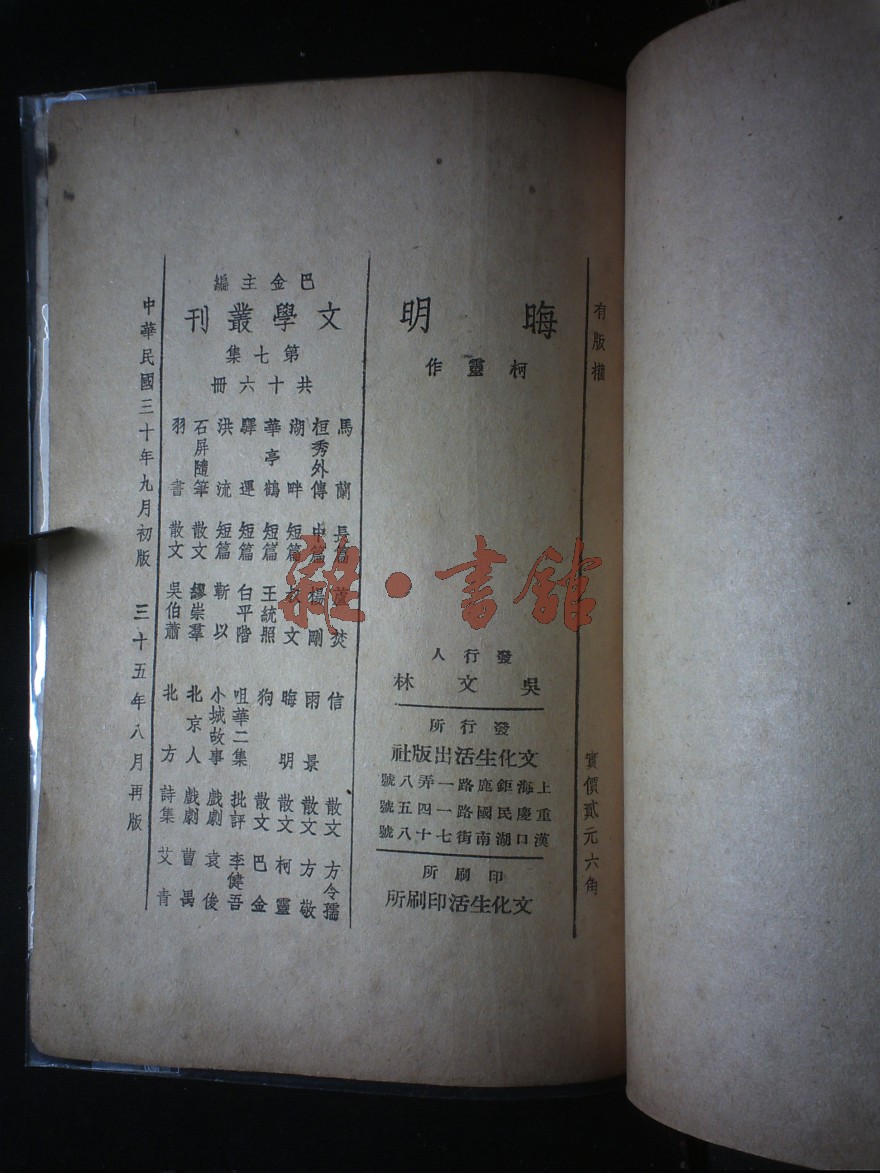 有版權
實價貳元六角
晦明
柯靈作
發行人
吳文林
發行所
文化生活出版社
上海鉅鹿路一弄八號
重慶民國路一四五號
漢口湖南街七十八號
印刷所
文化生活印刷所
巴金主編
文學叢刊
第七集
共十六冊
馬蘭 長篇 蘆焚
桓秀外傳 中篇 楊剛
湖畔 短篇 文
華亭鶴 短篇 王統照
驛運 短篇 白平階
洪流 短篇 靳以
石屏隨筆 散文 繆崇羣
羽書 散文 吳伯蕭
信 散文 方令孺
雨景 散文 方敬
晦明 散文 柯靈
狗 散文 巴金
咀華二集 批評 李健吾
小城故事 戲劇 袁俊
北京人 戲劇 曹禺
北方 詩集 艾青
中華民國三十年九月初版 三十五年八月再版
雜·書館